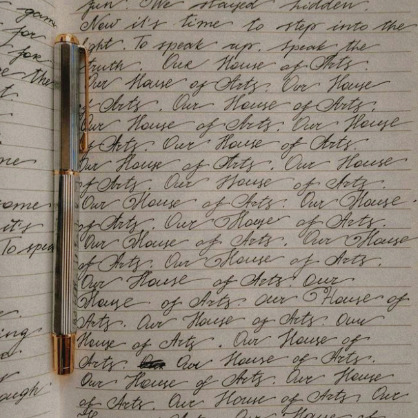 game
fun. We stayed hidden.
for
Now it's time to step into the
for
light. To speak up. Speak the
the
truth. Our House of Arts.
Our House of Arts. Our House
of Arts. Our House of Arts.
Our House of Arts. Our House
of Arts. Our House of Arts.
Our House of Arts. Our House
of Arts. Our House of Arts.
Our House of Arts. Our House
of Arts. Our House of Arts.
Our House of Arts. Our House
of Arts. Our House of Arts.
Our House of Arts. Our
House of Arts. Our House of
Arts. Our House of Arts. Our
House of Arts. Our House of
Arts. Our House of Arts.
Our House of Arts. Our House
of Arts. Our House of Arts. Our